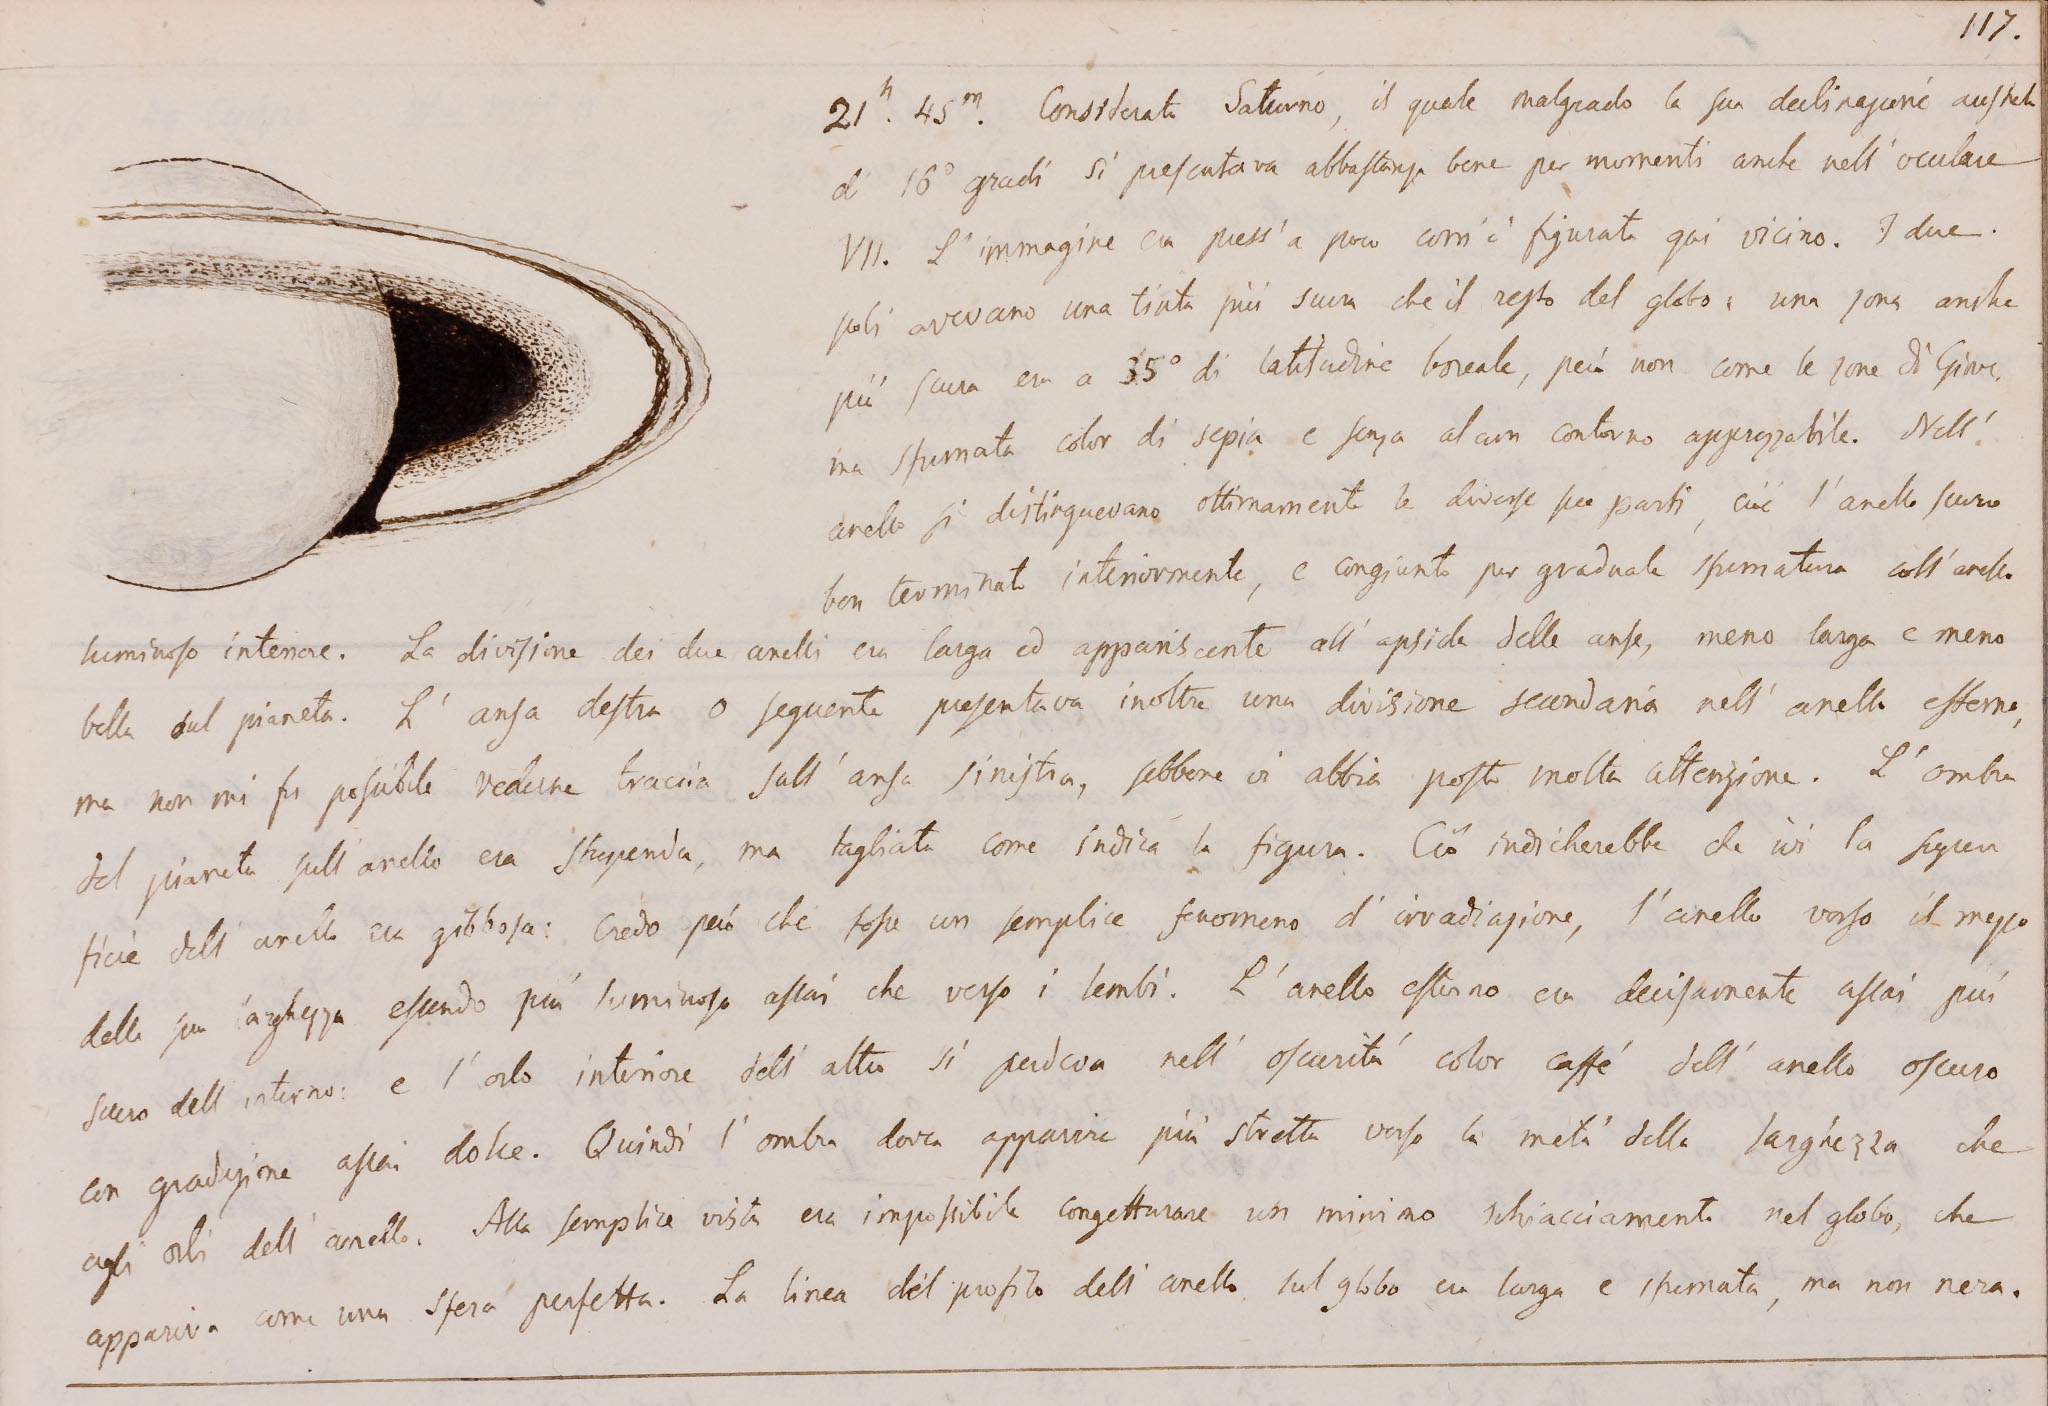 117.
21h. 45m. Considerato Saturno, il quale malgrado la sua declinazione australe
di 16° gradi si presentava abbastanza bene per momenti anche nell'oculare
VII. L'immagine era press'a poco com'è figurata qui vicino. I due
poli avevano una tinta più scura che il resto del globo: una zona anche
più scura era a 35° di latitudine boreale, però non come le zone di Giove,
ma sfumata color di sepia e senza alcun contorno apprezzabile. Nell'
anello si distinguevano ottimamente le diverse sue parti, cioè l'anello scuro
ben terminato interiormente, e congiunto per graduale sfumatura coll'anello
luminoso interiore. La divisione dei due anelli era larga ed appariscente all'apside delle anse, meno larga e meno
bella sul pianeta. L'ansa destra o seguente presentava inoltre una divisione secondaria nell'anello esterno,
ma non mi fu possibile vederne traccia sull'ansa sinistra, sebbene vi abbia posto molta attenzione. L'ombra
del pianeta sull'anello era stupenda, ma tagliata come indica la figura. Ciò indicherebbe che ivi la super
ficie dell'anello era gibbosa: credo però che fosse un semplice fenomeno d'irradiazione, l'anello verso il mezzo
della sua larghezza essendo più luminoso assai che verso i lembi. L'anello esterno era decisamente assai più
scuro dell'interno: e l'orlo interiore dell'altro si perdeva nell'oscurità color caffé dell'anello oscuro
con gradazione assai dolce. Quindi l'ombra dovea apparire più stretta verso la metà della larghezza che
agli orli dell'anello. Alla semplice vista era impossibile congetturare un minimo schiacciamento nel globo, che
appariva come una sfera perfetta. La linea del profilo dell'anello sul globo era larga e sfumata, ma non nera.